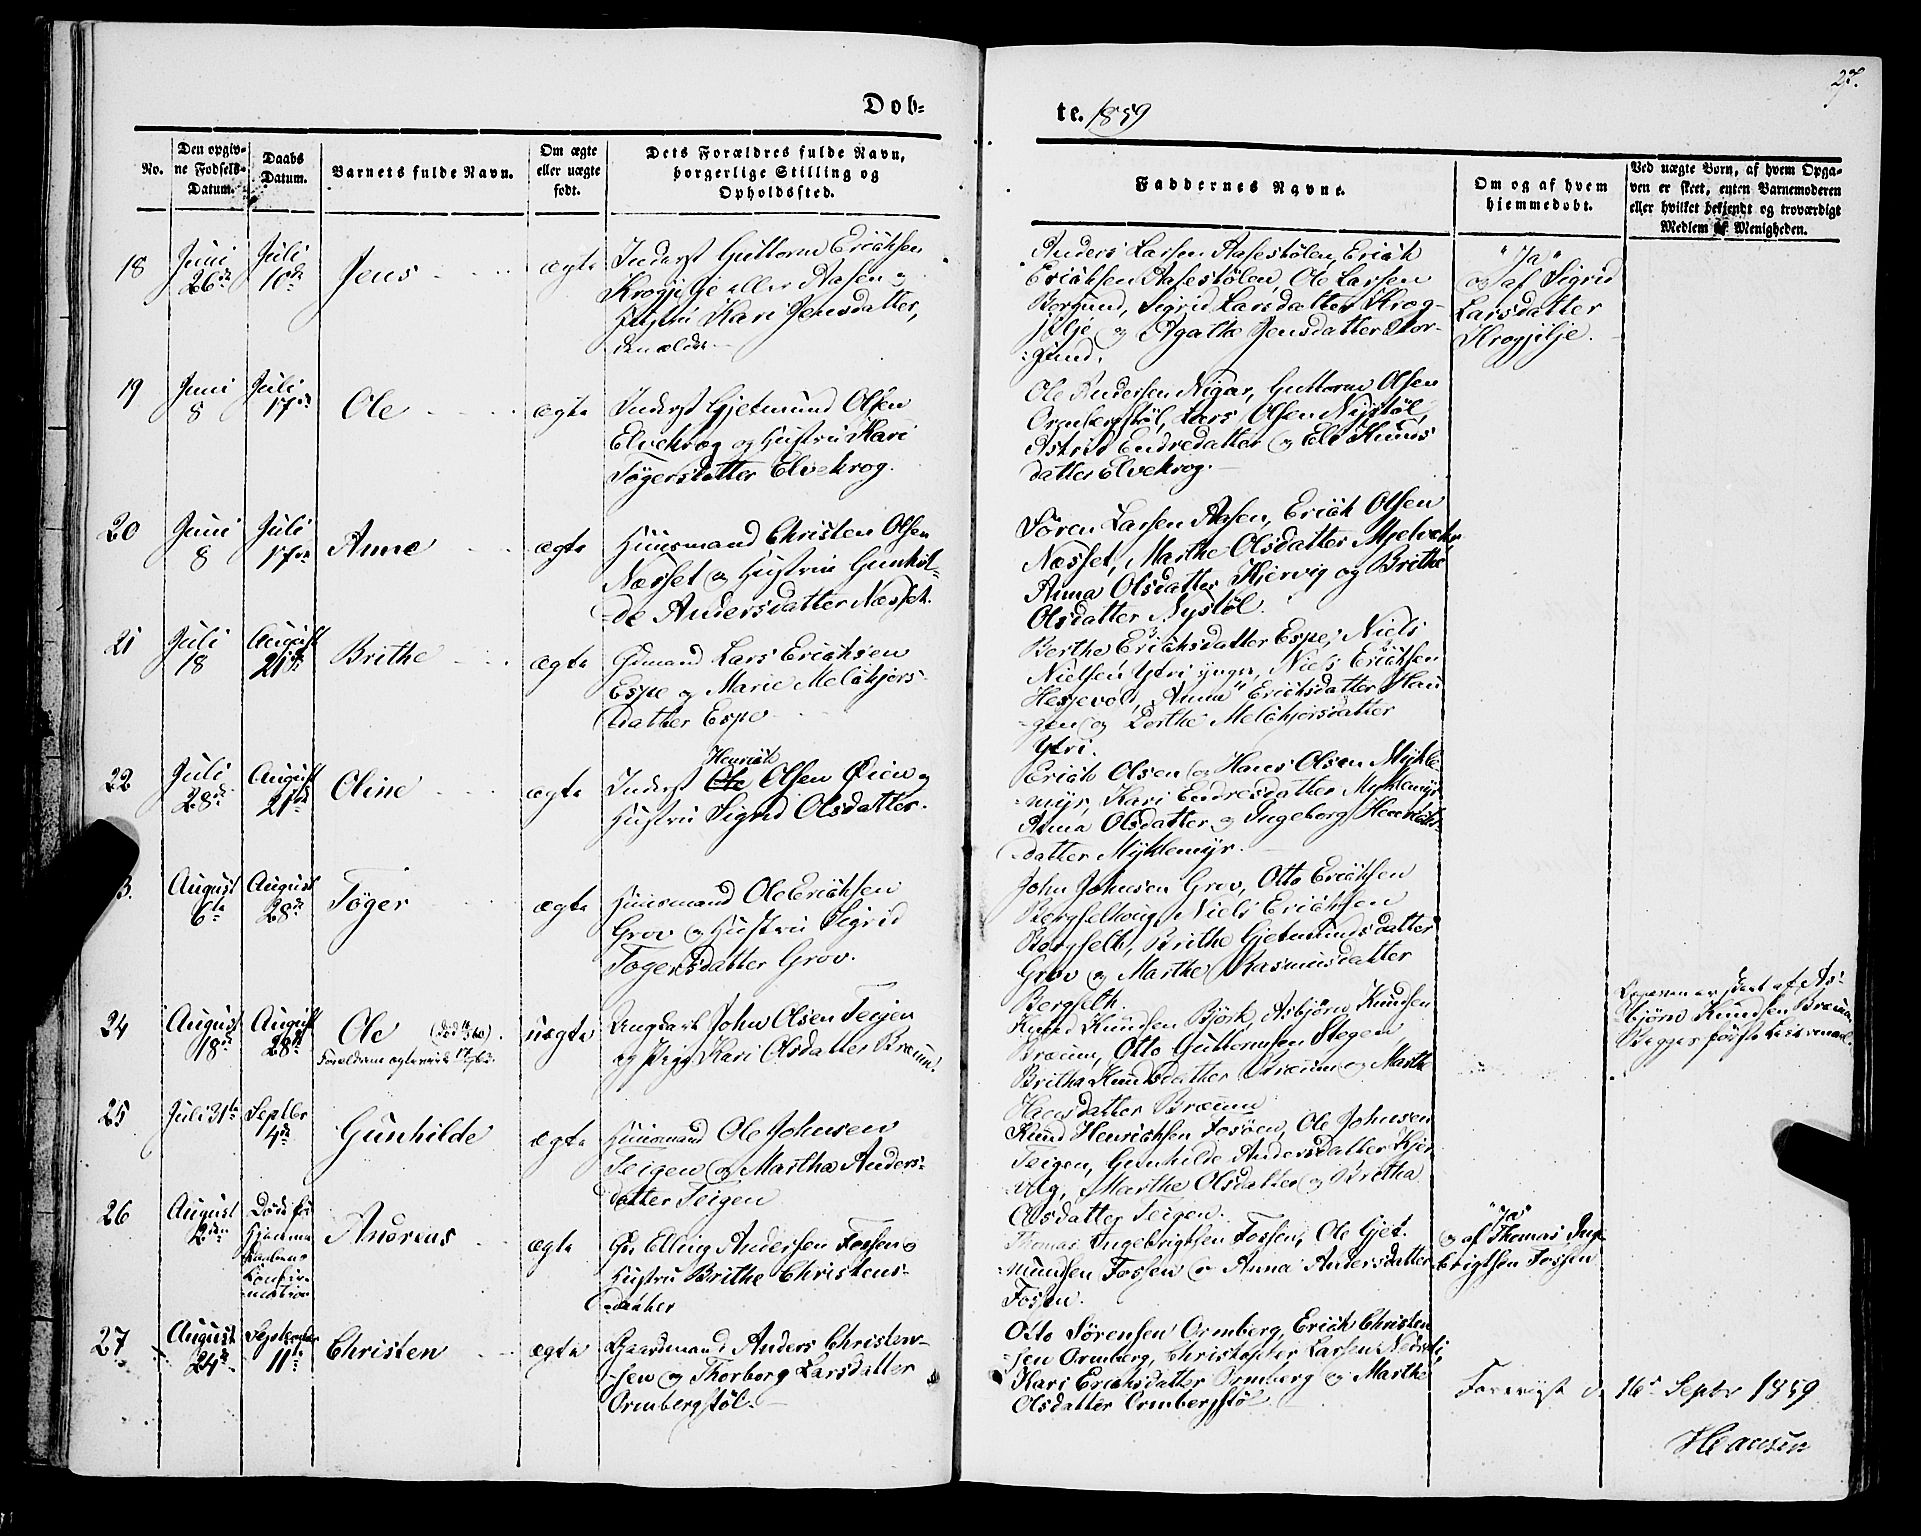 27.
Døb-
te. 1859
No.
Den opgiv-
ne Fødsels-
Datum.
Daabs
Datum.
Barnets fulde Navn.
Om ægte
eller uægte
født.
Dets Forældres fulde Navn,
borgerlige Stilling og
Opholdssted.
Faddernes Navne.
Om og af hvem
hjemmedøbt.
Ved uægte Børn, af hvem Opga-
ven er skeet, enten Barnemoderen
eller hvilket bekjendt og troværdigt
Medlem af Menigheden.
18
Juni
26de
Juli
10de
Jens
ægte
Inderst Guttorm Erichsen
Krogjilje eller Aasen og
Hustru Kari Jensdatter,
Anders Larsen Aasestølen, Erich
Erichsen Aasestølen, Ole Larsen
Borgund, Sigrid Larsdatter Krog-
jilje og Agathe Jensdatter Bor-
gund.
"Ja"
og af Sigrid
Larsdatter
Krogjilje.
19
Juni
8
Juli
17de
Ole
ægte
Inderst Gjetmund Olsen
Elvekrog og Hustru Kari
Tøgersdatter Elvekrog.
Ole Andersen Nigar, Guttorm Olsen
Ormbergstøl, Lars Olsen Nystøl,
Astrid Endredatter og Eli Knuds
datter Elvekrog.
20
Juni
8
Juli
17de
Anna
ægte
Huusmand Christen Olsen
Næsset og Hustru Gunhil-
de Andersdatter Næsset.
Søren Larsen Aasen, Erich Olsen
Næsset, Marthe Olsdatter
Anna Olsdatter Kjervig og Brithe
Olsdatter Nystøl.
21
Juli
18
August
21de
Brithe
ægte
Gmand Lars Erichsen
Espe og Marie Melchjors-
datter Espe
Berthe Erichsdatter Espe, Niels
Nielsen Ytri ynger, Niels Erichsen
Hesjevoll, Anna Erichsdatter Hau
gen og Dorthe Melchjorsdatter
Ytri.
22
Juli
28de
August
21de
Oline
ægte
Henrich
Inderst Ole Olsen Øien og
Hustru Sigrid Olsdatter.
Erich Olsen og Hans Olsen Mykle
myr, Kari Endresdatter Myklemyr
Anna Olsdatter og Ingeborg Henrichs-
datter Myklemyr.
3.
August
6te
August
28de
Tøger
ægte
Huusmand Ole Erichsen
Grov og Hustru Sigrid
Togersdatter Grov.
John Johnsen Grov, Otto Erichsen
Bergselhoug, Niels Erichsen
Bergselb, Brithe Gjetmundsdatter
Grov og Marthe Rasmusdatter
Bergselh.
24
August
18de
August
28de
Ole
Forældrene ægteviede
uægte
Ungkarl John Olsen Teigen
og Pige Kari Olsdatter Bræum.
Knud Knudsen Björk, Asbjörn Knudsen
Bræum, Otto Guttormsen Stegen
Britha Knudsdatter Bræum og Marthe
Hansdatter Bræum
Opgaven er skeet af As-
bjørn Knudsen Bræum
Begges første Leiermaal.
25
Juli 31te
Septbr
4de
Gunhilde
ægte
Huusmand Ole Johnsen
Teigen og Martha Anders-
datter Teigen
Knud Henrichsen Fosøen, Ole Johnsen
Teigen, Gunhilde Andersdatter Kjer
vig, Marthe Olsdatter og Britha
Olsdatter Teigen.
26
August
2den
Døde før
Hjemme
daabens
Confir-
mation
Andreas
ægte
Gr Elling Andersen Fossen og
Hustru Brithe Christens-
datter
Thomas Ingebrigtsen Fossen, Ole Gjet-
mundsen Fossen og Anna Andersdatter
Fossen.
"Ja"
og af Thomas Inge
brigtsen Fossen
27
August
24de
September
11te
Christen
ægte
Gaardmand Anders Christen-
sen og Thorborg Larsdatter
Ormbergstøl.
Otto Sørensen Ormberg, Erich Christen
sen Ormberg, Christopher Larsen
Kari Erichsdatter Ormberg og Marthe
Olsdatter Ormbergstøl
Foreviist d 16de Septbr 1859